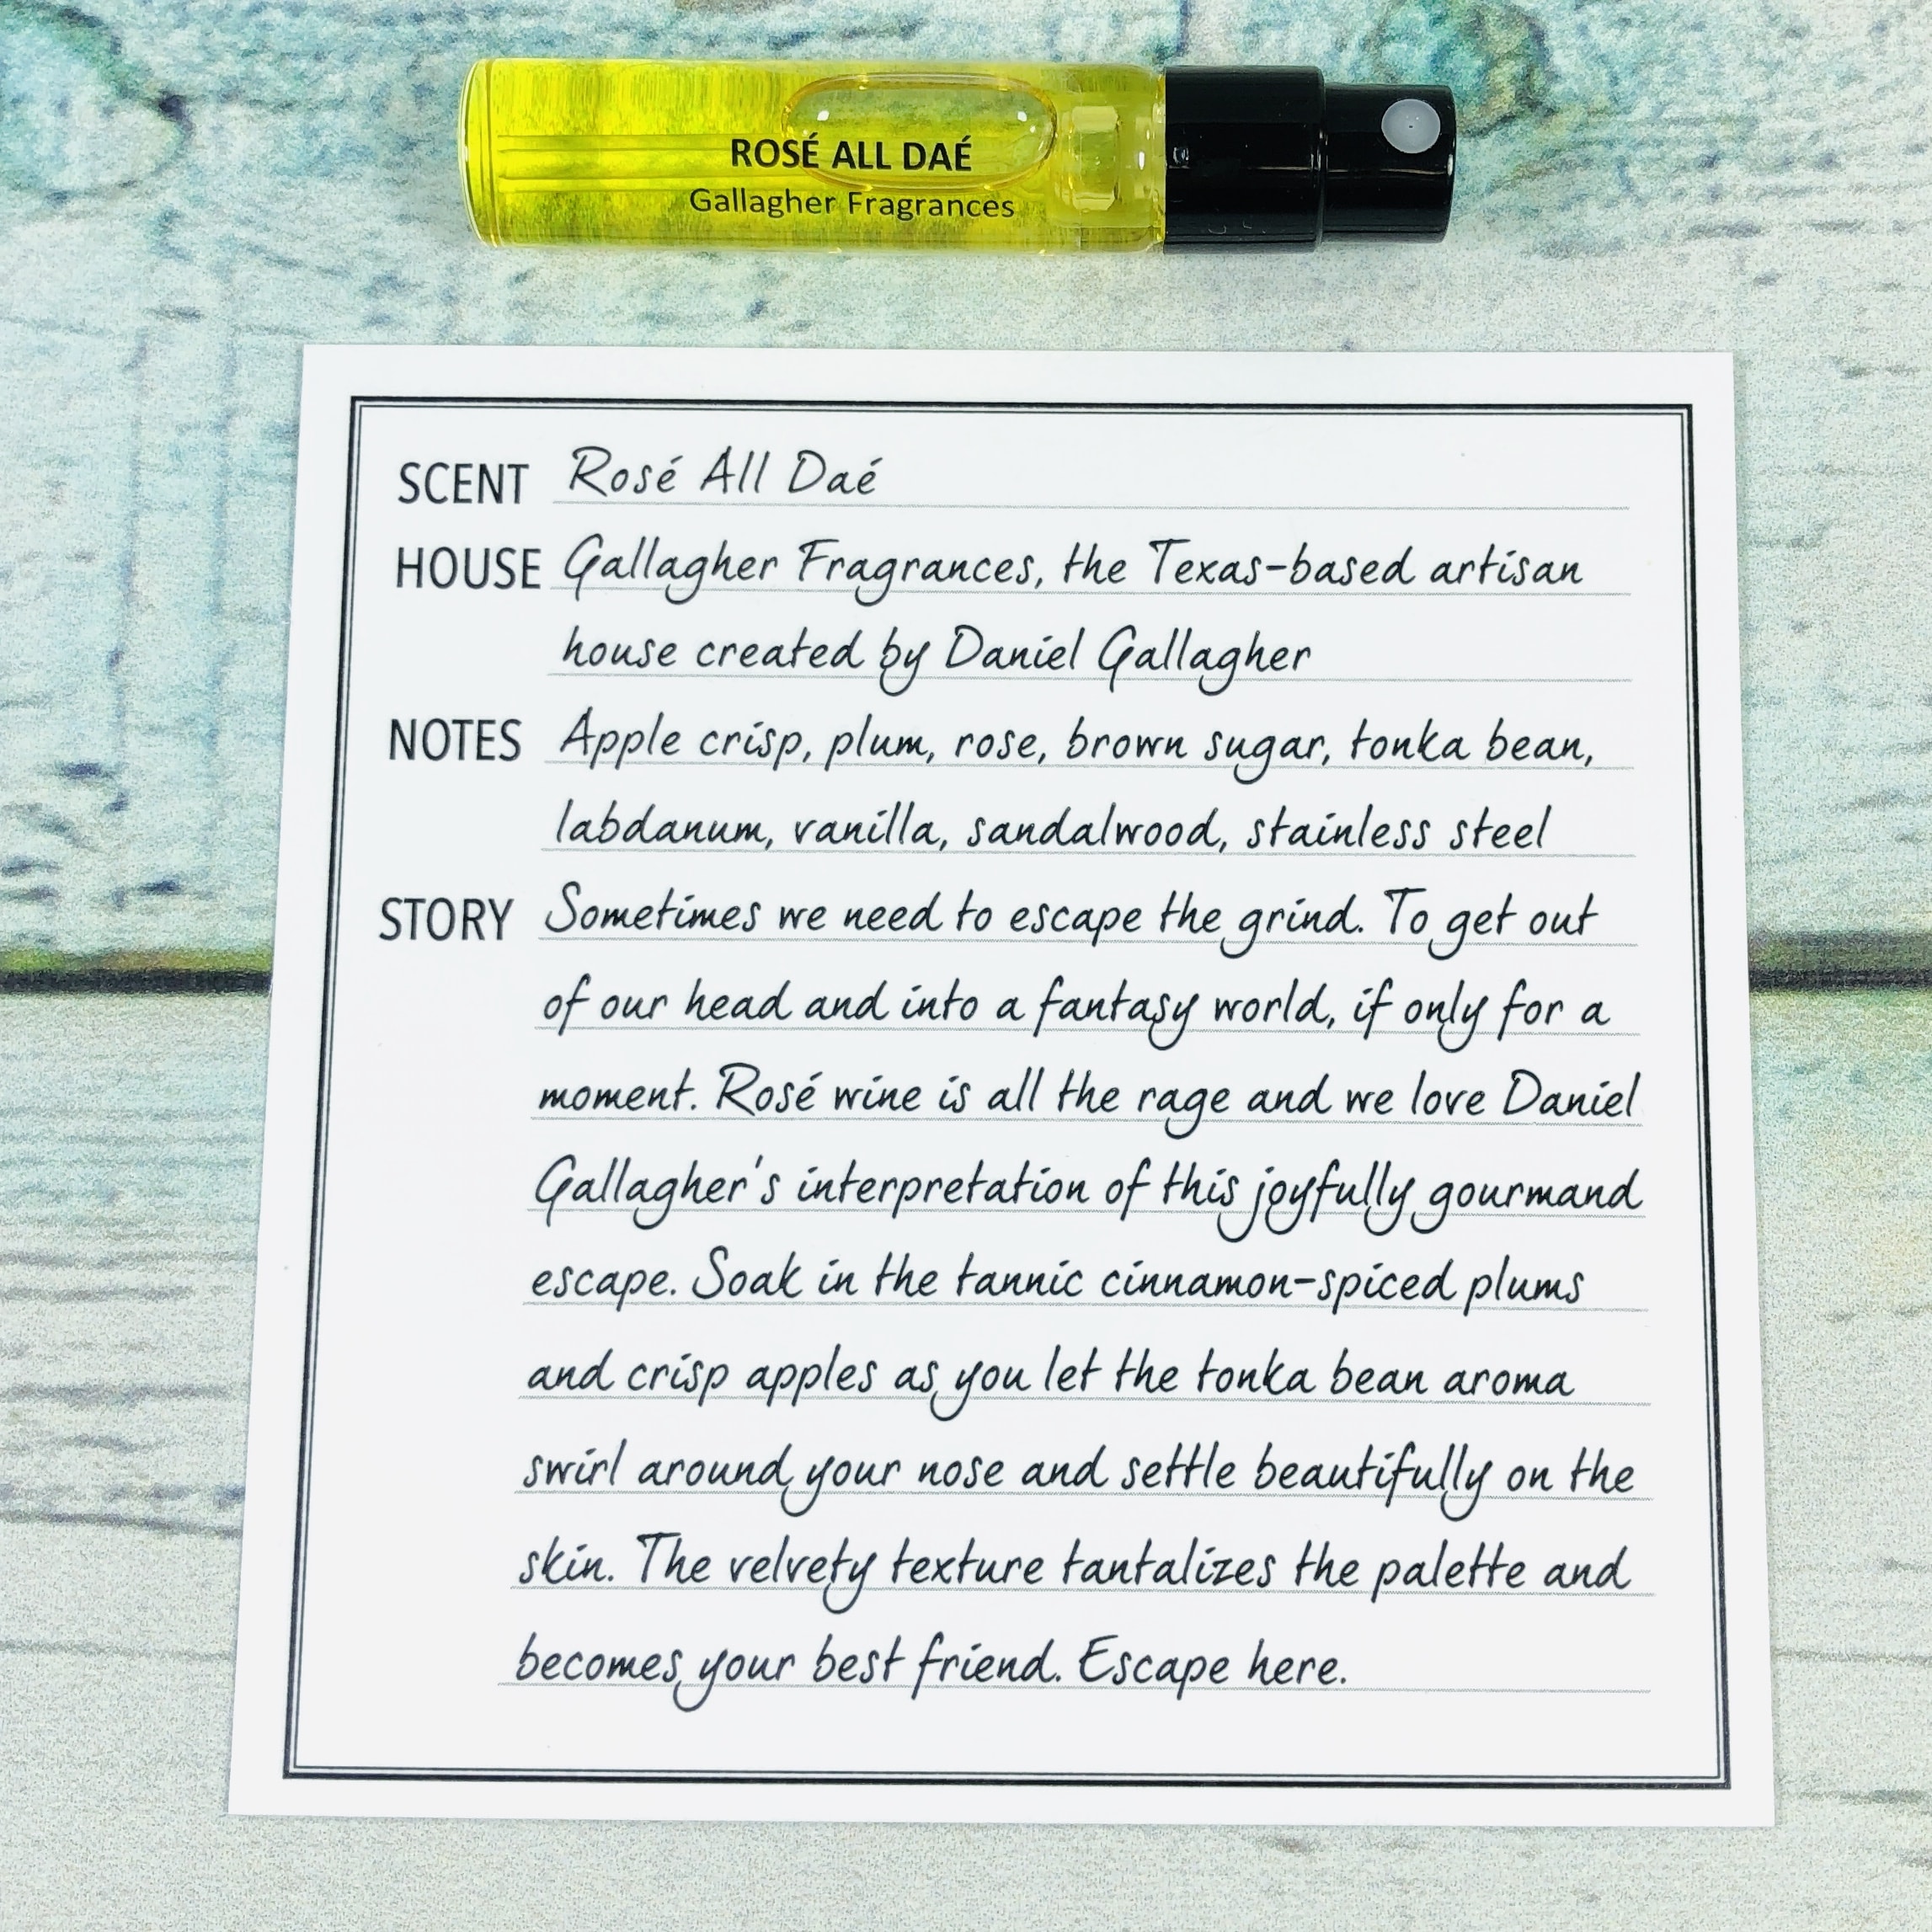 ROSÉ ALL DAÉ
Gallagher Fragrances
SCENT Rosé All Daé
HOUSE Gallagher Fragrances, the Texas-based artisan
house created by Daniel Gallagher
NOTES Apple crisp, plum, rose, brown sugar, tonka bean,
labdanum, vanilla, sandalwood, stainless steel
STORY Sometimes we need to escape the grind. To get out
of our head and into a fantasy world, if only for a
moment. Rosé wine is all the rage and we love Daniel
Gallagher's interpretation of this joyfully gourmand
escape. Soak in the tannic cinnamon-spiced plums
and crisp apples as you let the tonka bean aroma
swirl around your nose and settle beautifully on the
skin. The velvety texture tantalizes the palette and
becomes your best friend. Escape here.